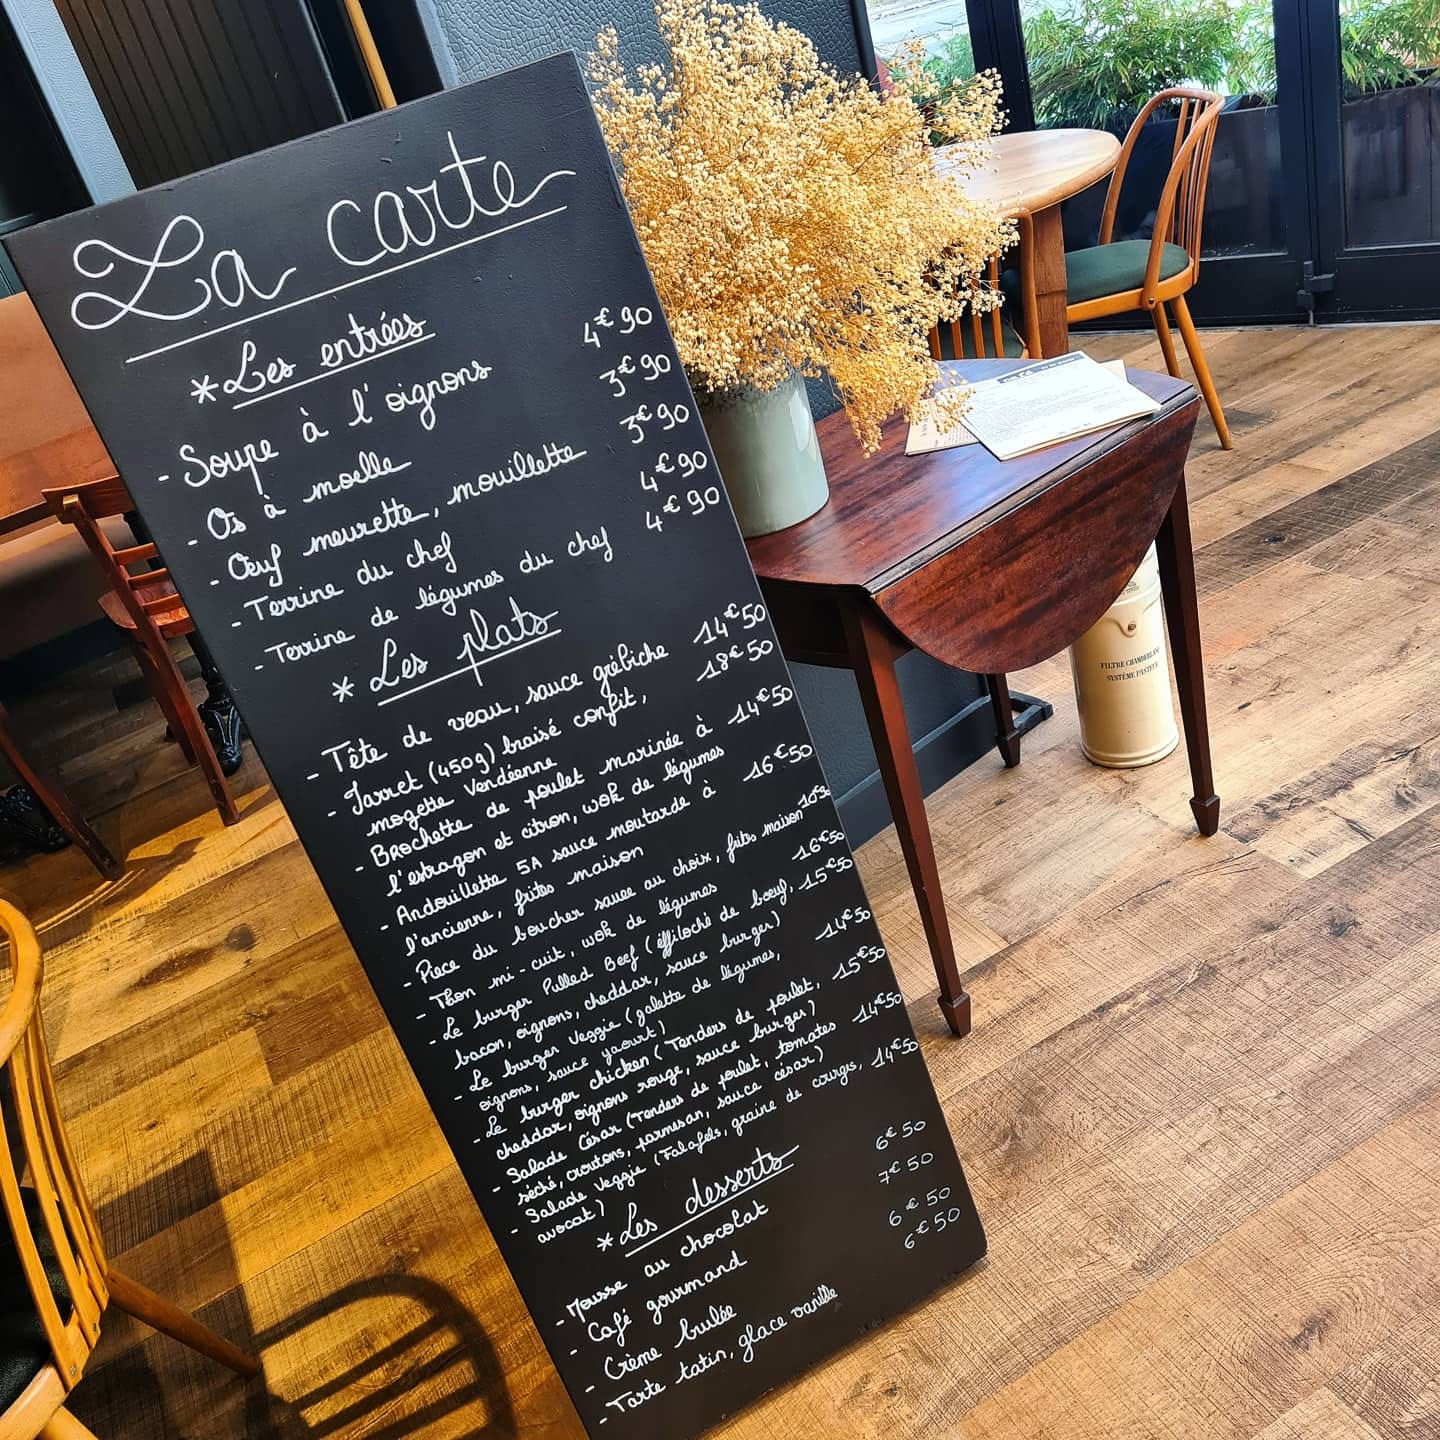 La carte
*Les entrées
- Soupe à l'oignons 4€90
- Os à moelle 3€90
- Œuf meurette, mouillette 3€90
- Terrine du chef 4€90
- Terrine de légumes du chef 4€90
* Les plats
- Tête de veau, sauce grébiche 14€50
- Jarret (450g) braisé confit, 18€50
mogette Vendéenne
- Brochette de poulet marinée à 14€50
l'estragon et citron, wok de légumes
- Andouillette 5A sauce moutarde à 16€50
l'ancienne, frites maison
- Piece du boucher sauce au choix, frites maison
- Thon mi-cuit, wok de légumes 16€50
- Le burger Pulled Beef (éffiloché de bœuf, 15€50
bacon, oignons, cheddar, sauce burger)
- Le burger Veggie (galette de légumes, 14€50
oignons, sauce yaourt)
- Le burger chicken (Tenders de poulet, 15€50
cheddar, oignons rouge, sauce burger)
- Salade César (Tenders de poulet, tomates 14€50
séché, croutons, parmesan, sauce césar)
- Salade Veggie (Falafels, graine de courges, 14€50
avocat)
* Les desserts
- Mousse au chocolat 6€50
- Café gourmand 7€50
- Crème brulée 6€50
- Tarte tatin, glace vanille 6€50
FILTRE CHAMBERLAND
SYSTÈME PASTEUR